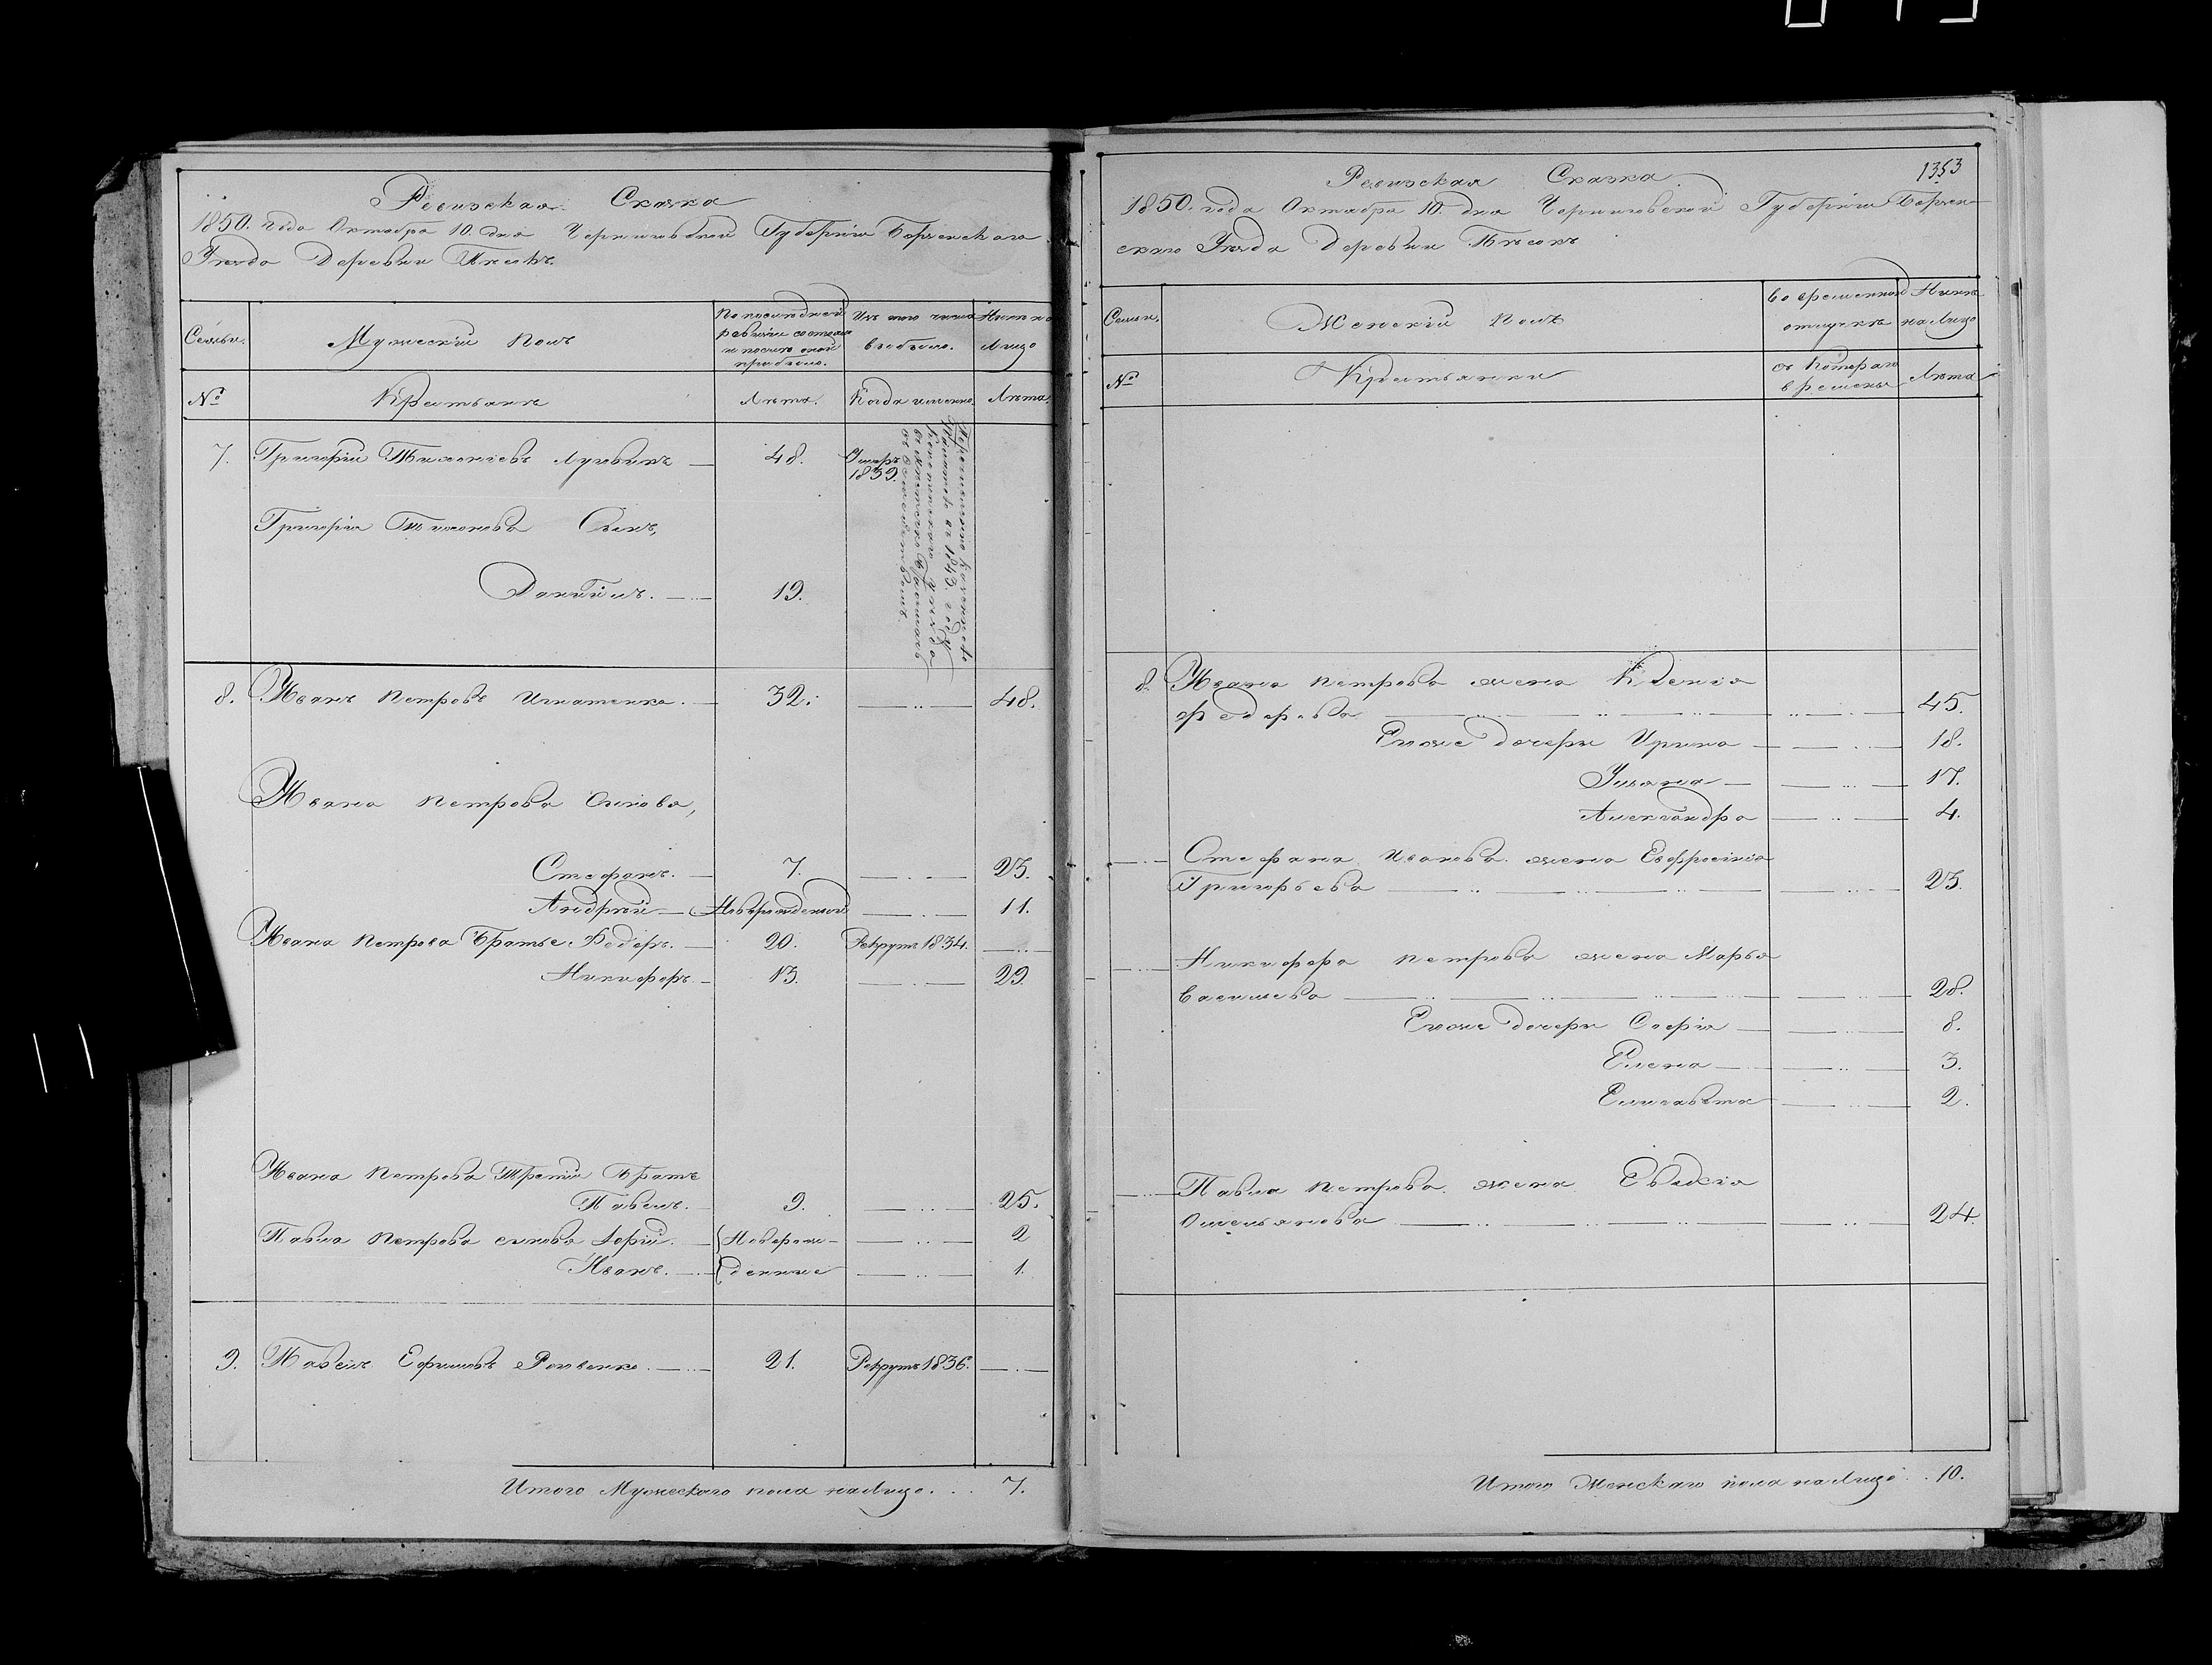 Ревизская Сказка
1850. года Октября 10. дня Черниговской Губернiи Борзенскаго
Уезда Деревни Песокъ.
Семьи.
Мужескiй полъ
По последней
ревизiи состояло
и после оной
прибыло.
Изъ того числа
выбыло.
Ныне на
Лицо
№
Крестьяне
Лета.
Когда именно.
Лета.
7. Григорiй Тихонiевъ 48. Умеръ
1839.
Григорiя Тихонова Сынъ,
Данiилъ. 19.
въ 1843. году
8. Иванъ Петровъ Игнатенко. 32. 48.
Ивана Петрова Сыновья,
Стефанъ. 7. 23.
Андрей Новорожденный 11.
Ивана Петрова Братья Федоръ. 20. Рекрутъ 1834.
Никифоръ. 13. 29.
Ивана Петрова Третiй Братъ
Павелъ. 9. 25.
Павла Петрова сыновья Новорож- 2
Иванъ. денные 1.
9. Павелъ Ефимовъ 21. Рекрутъ 1836.
Итого Мужескаго пола на Лицо. . . 7.
1353
Ревизская Сказка
1850. года Октября 10. дня Черниговской Губернiи Борзен-
скаго Уезда Деревни Песокъ
Семьи.
Женскiй полъ
Во временной
отлучке
Ныне
на Лицо
№
Крестьянки
съ Котораго
времени
Лета
8. Ивана Петрова жена Ксенiя
Федорова 45.
Егоже дочери Ирина 18.
Ульяна 17.
Александра 4.
Стефана Иванова жена Евфросинiя
Григорьева 23.
Никифора Петрова жена Марья
Васильева 28.
Егоже дочери Софiя 8.
Елена 3.
Елисавета 2.
Павла Петрова жена Евдокiя
Омельянова 24.
Итого Женскаго пола на Лицо . . 10.